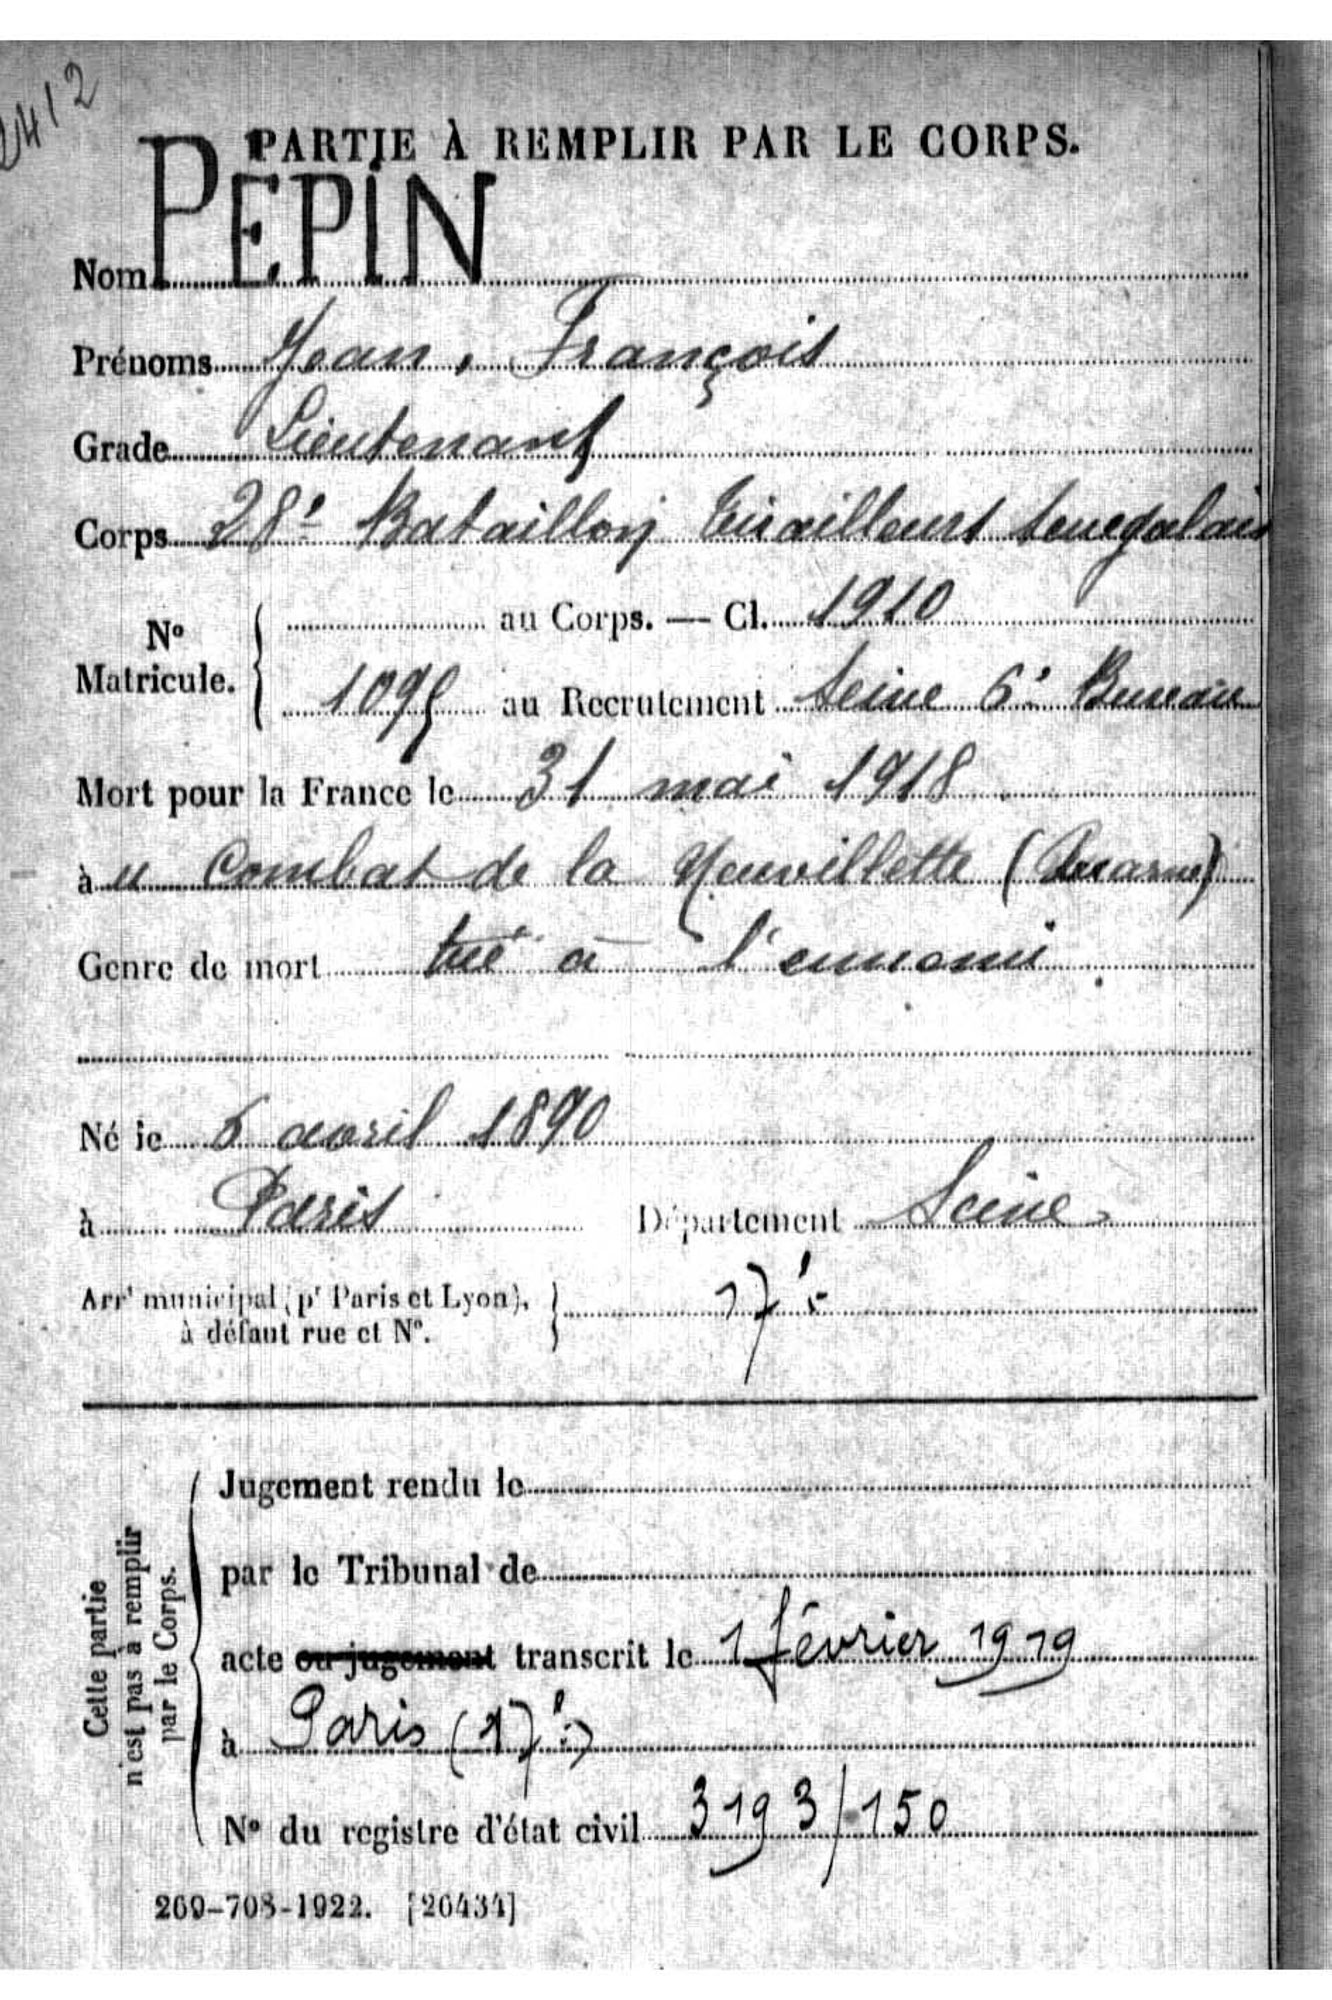 2412
PARTIE À REMPLIR PAR LE CORPS.
Nom PEPIN
Prénoms Jean, François
Grade Lieutenant
Corps 28e Bataillon Tirailleurs Senegalais
No Matricule. { au Corps. — Cl. 1910
1095 au Recrutement Seine 6e Bureau
Mort pour la France le 31 mai 1918
à u Combat de la Neuvillette (Marne)
Genre de mort tué à l'ennemi
Né le 5 avril 1890
à Paris Département Seine
Arrt municipal (pr Paris et Lyon), à défaut rue et No. } 17e
Cette partie n'est pas à remplir par le Corps.
Jugement rendu le
par le Tribunal de
acte ou jugement transcrit le 1 février 1919
à Paris (17e)
No du registre d'état civil 3193/150
269-708-1922. [26434]